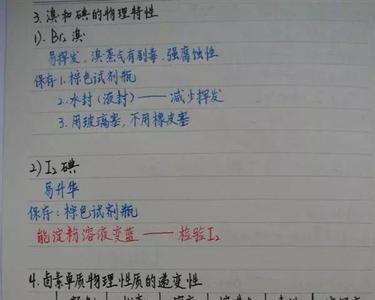 3. 溴和碘的物理特性
1). Br₂ 溴
易挥发、溴蒸气有剧毒、强腐蚀性
保存 1. 棕色试剂瓶
2. 水封(液封)——减少挥发
3. 用玻璃塞, 不用橡皮塞
2) I₂ 碘
易升华
保存: 棕色试剂瓶
能淀粉溶液变蓝——检验I₂
4. 卤素单质物理性质的递变性